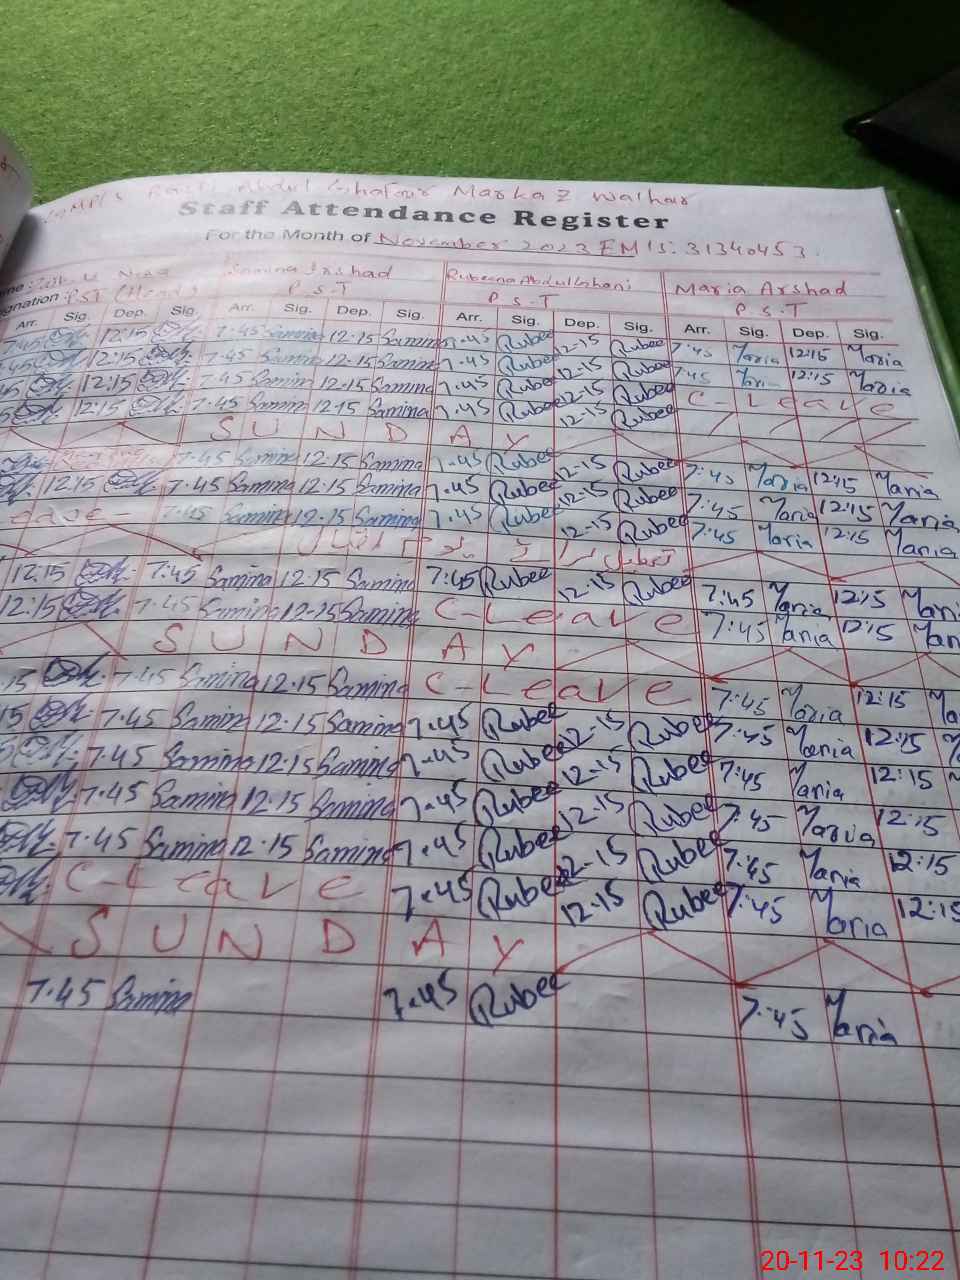 Abdul Ghafoor Markaz Walhar
Staff Attendance Register
For the Month of November 2023 EMIS: 31340453
Samina Arshad Rubeena Abdul Ghani Maria Arshad
PST (Head) P.S.T P.S.T P.S.T
Arr. Sig. Dep. Sig. Arr. Sig. Dep. Sig. Arr. Sig. Dep. Sig. Arr. Sig. Dep. Sig.
12:15 7-45 Samina 12-15 Samina 7-45 Rubee 12-15 Rubee 7:45 Maria 12:15 Maria
12:15 7-45 Samina 12-15 Samina 7-45 Rubee 12-15 Rubee 7:45 Maria 12:15 Maria
12:15 7-45 Samina 12-15 Samina 7-45 Rubee 12-15 Rubee C-Leave
12:15 7-45 Samina 12-15 Samina 7-45 Rubee 12-15 Rubee
SUNDAY
7-45 Samina 12-15 Samina 7-45 Rubee 12-15 Rubee 7:45 Maria 12:15 Maria
12:15 7-45 Samina 12-15 Samina 7-45 Rubee 12-15 Rubee 7:45 Maria 12:15 Maria
eave 7-45 Samina 12-15 Samina 7-45 Rubee 12-15 Rubee 7:45 Maria 12:15 Maria
12:15 7-45 Samina 12-15 Samina 7:45 Rubee 12-15 Rubee 7:45 Maria 12:15 Mari
12:15 7-45 Samina 12-15 Samina C-Leave 7:45 Maria 12:15 Mari
SUNDAY
15 7-45 Samina 12-15 Samina C-Leave 7:45 Maria 12:15 Ma
15 7-45 Samina 12-15 Samina 7-45 Rubee 12-15 Rubee 7:45 Maria 12:15
7-45 Samina 12-15 Samina 7-45 Rubee 12-15 Rubee 7:45 Maria 12:15
7-45 Samina 12-15 Samina 7-45 Rubee 12-15 Rubee 7:45 Maria 12:15
7-45 Samina 12-15 Samina 7-45 Rubee 12-15 Rubee 7:45 Maria 12:15
C-Leave 7-45 Rubee 12-15 Rubee 7:45 Maria 12:15
SUNDAY
7-45 Samina 7-45 Rubee 7:45 Maria
20-11-23 10:22